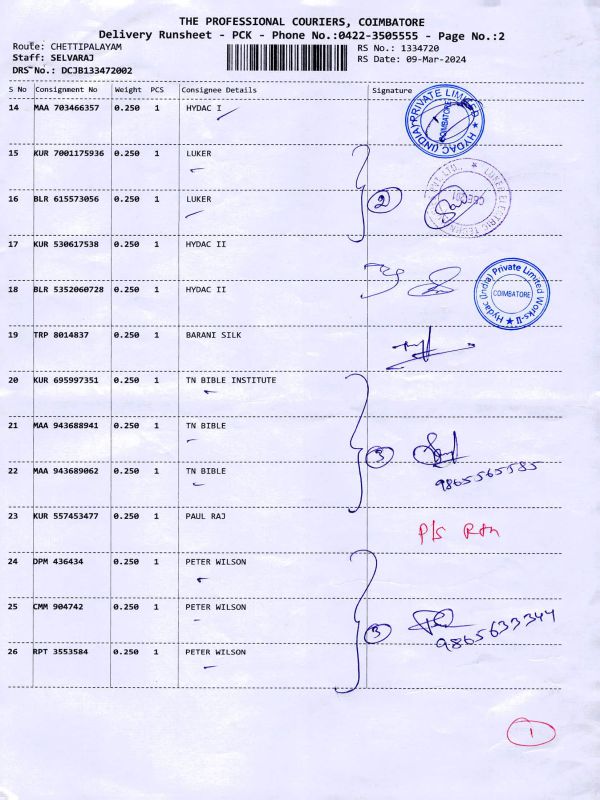 THE PROFESSIONAL COURIERS, COIMBATORE
Delivery Runsheet - PCK - Phone No.:0422-3505555 - Page No.:2
Route: CHETTIPALAYAM
Staff: SELVARAJ
DRS No.: DCJB133472002
RS No.: 1334720
RS Date: 09-Mar-2024
S No Consignment No Weight PCS Consignee Details Signature
14 MAA 703466357 0.250 1 HYDAC I
HYDAC (INDIA) PRIVATE LIMITED COIMBATORE
15 KUR 7001175936 0.250 1 LUKER
16 BLR 615573056 0.250 1 LUKER
2
17 KUR 530617538 0.250 1 HYDAC II
18 BLR 5352060728 0.250 1 HYDAC II
Hydac (India) Private Limited Works-II COIMBATORE
19 TRP 8014837 0.250 1 BARANI SILK
20 KUR 695997351 0.250 1 TN BIBLE INSTITUTE
21 MAA 943688941 0.250 1 TN BIBLE
3
9865565585
22 MAA 943689062 0.250 1 TN BIBLE
23 KUR 557453477 0.250 1 PAUL RAJ
P/s Rtn
24 DPM 436434 0.250 1 PETER WILSON
25 CMM 904742 0.250 1 PETER WILSON
3
9865633344
26 RPT 3553584 0.250 1 PETER WILSON
1